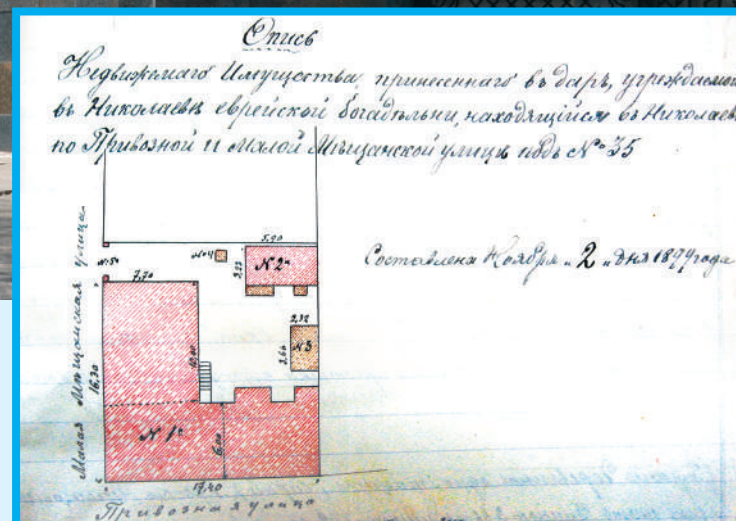 Опись
Недвижемаго Имущества, принесеннаго въ даръ, учреждаемой
въ Николаевѣ еврейской богадѣльни, находящійся въ Николаевѣ
по Привозной и Малой Мѣщанской улицѣ подъ № 35
Составлена Ноября „2„ дня 1899 года
5,90
№ 4
№ 5
7,70
3,22
№ 2
2,32
2,66
№ 3
10,00
16,30
Малая Мѣщанская улица
№ 1
6,00
17,40
Привозная улица